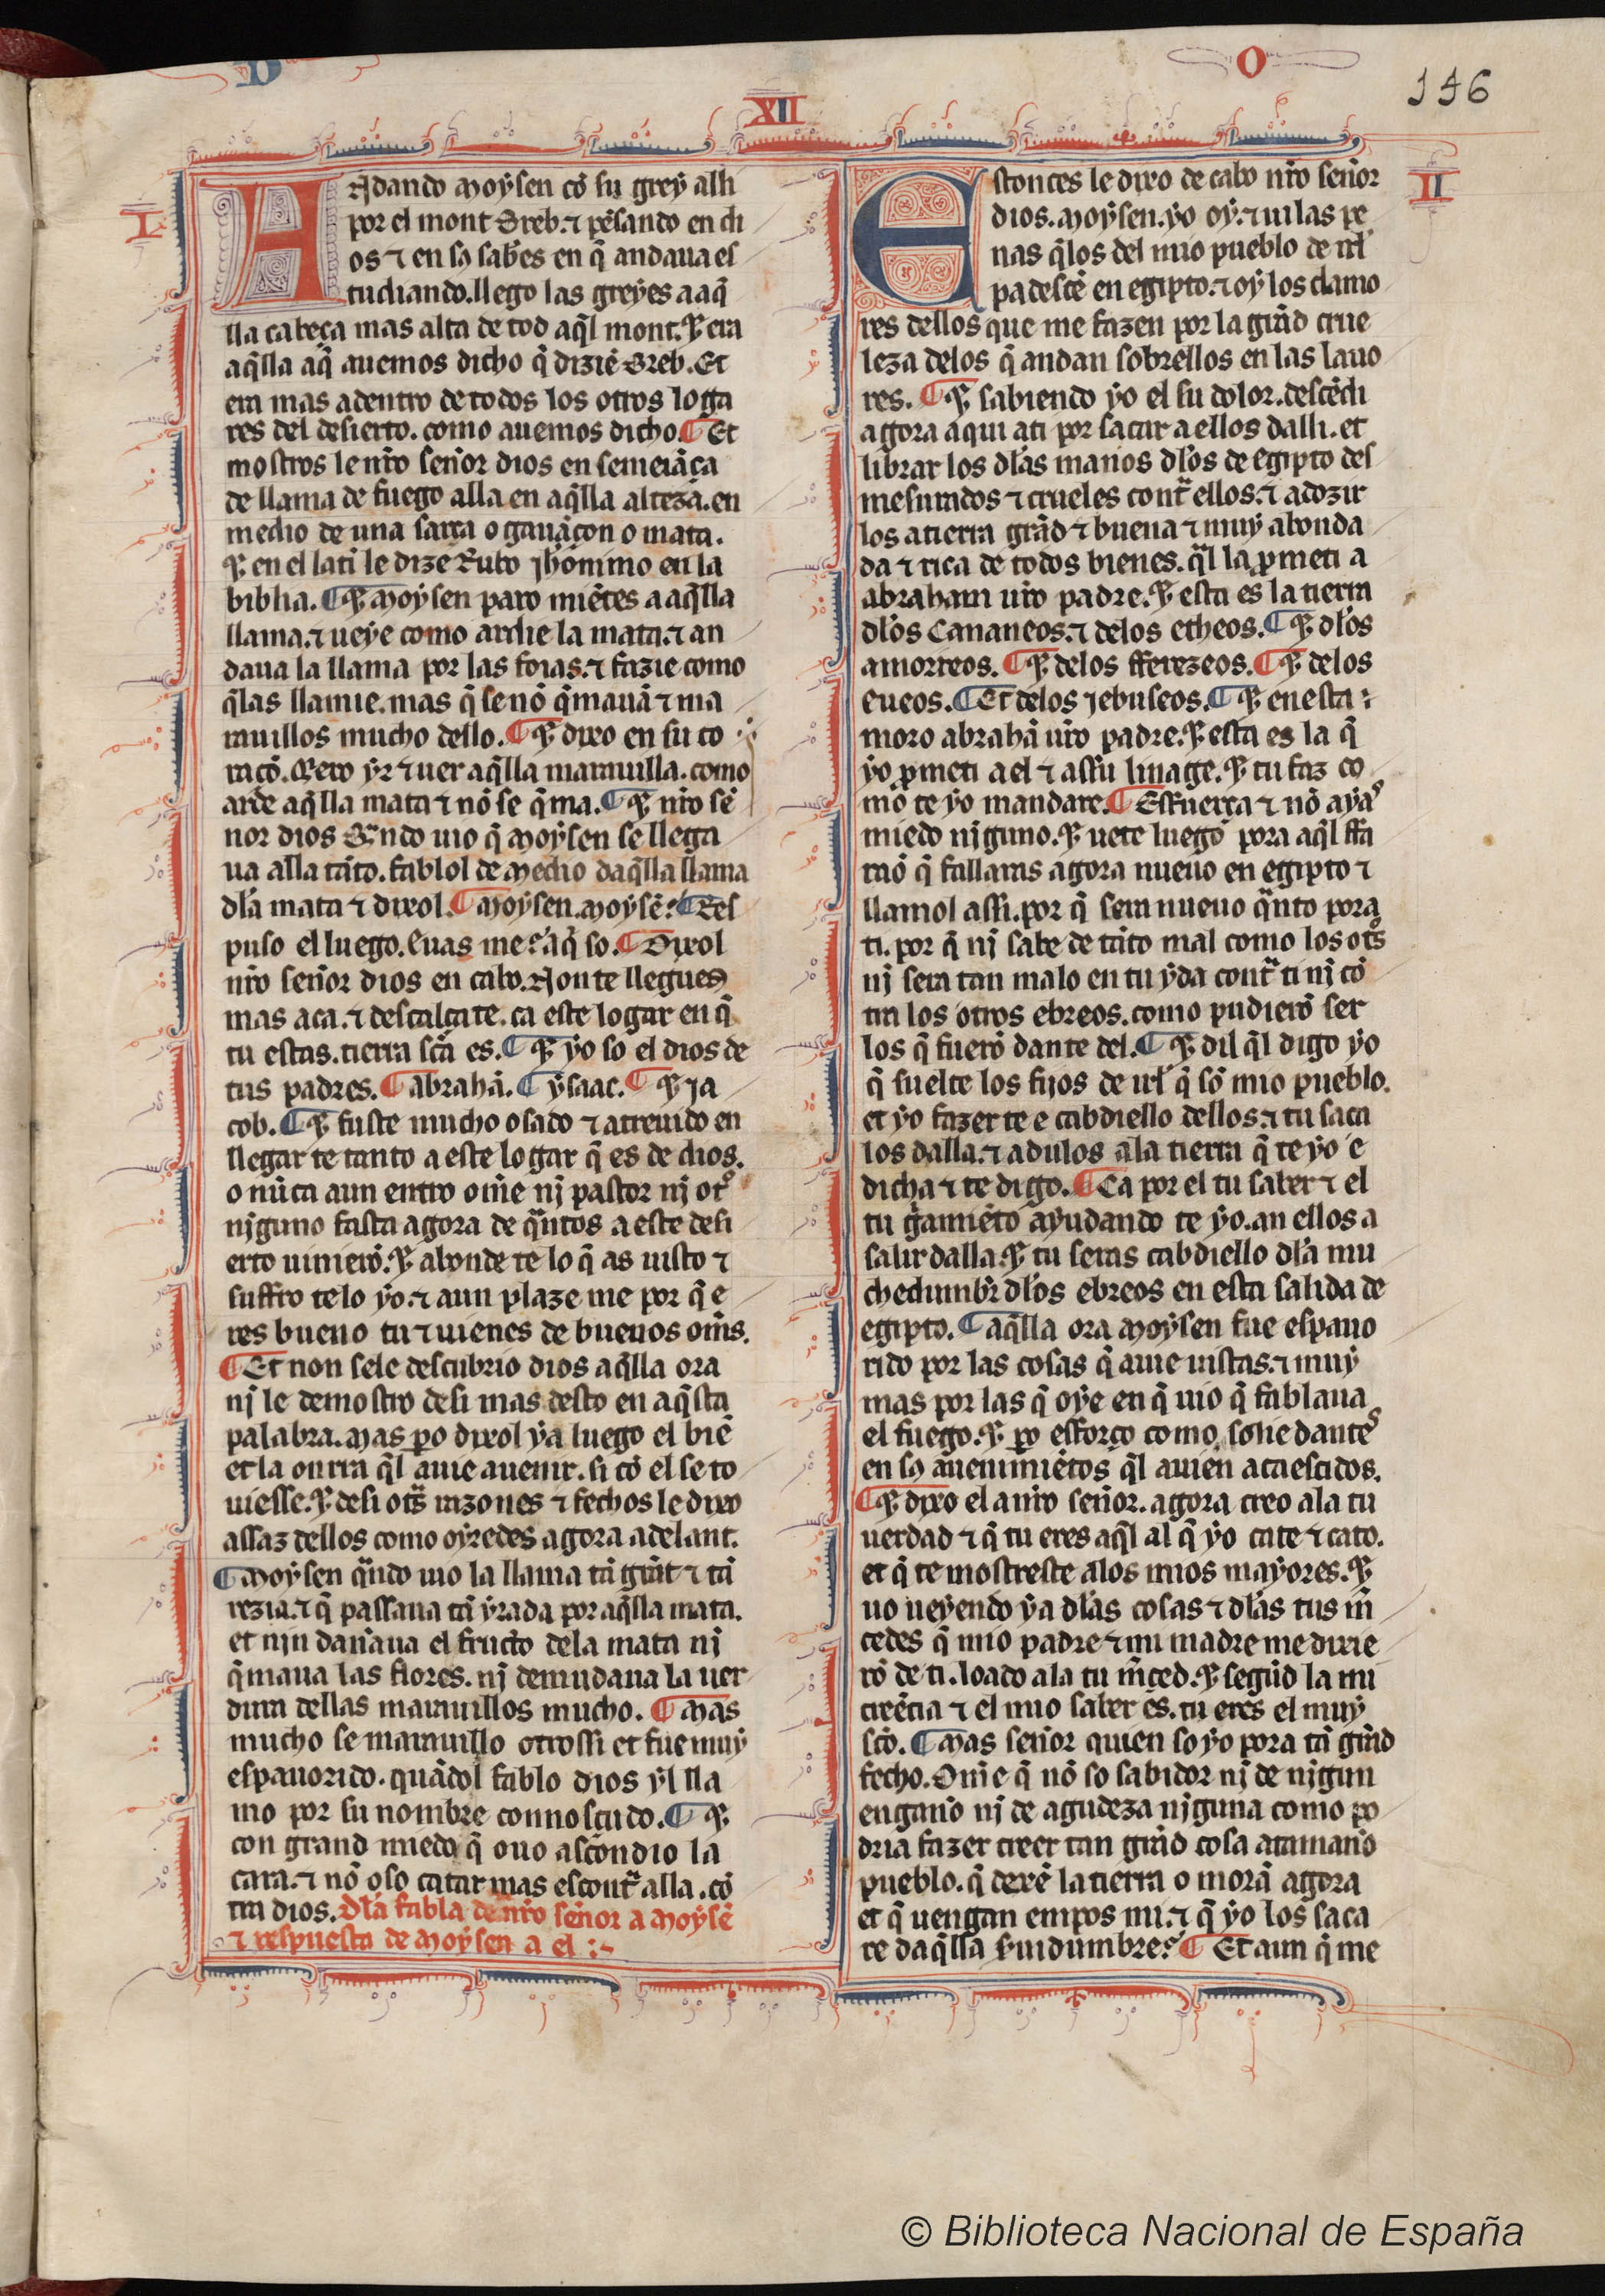 O
146
XII
I
ANdando Moysen cõ su grey alli
por el mont Oreb. ⁊ pẽsando en di
os ⁊ en sꝯ saberes en q̃ andaua es
tudiando. llego las greyes a aq̃
lla cabeça mas alta de tod aq̃l mont. ⁊ era
aq̃lla aq̃ auemos dicho q̃ diziẽ Oreb. Et
era mas adentro de todos los otros loga
res del desierto. como auemos dicho. ¶ Et
mostros le nr̃o señor dios en semeiãça
de llama de fuego alla en aq̃lla alteza. en
medio de una sarça o gauãçon o mata.
⁊ en el latĩ le dize Rubo Jherónimo en la
biblia. ¶ ⁊ Moysen paro miẽtes a aq̃lla
llama. ⁊ ueye como ardie la mata. ⁊ an
daua la llama por las foias. ⁊ fazie como
q̃ las llamie. mas q̃ se nõ q̃mauã ⁊ ma
rauillos mucho dello. ¶ ⁊ dixo en su co
raçõ. Q̃ero yr ⁊ uer aq̃lla marauilla. como
arde aq̃lla mata ⁊ nõ se q̃ma. ¶ ⁊ nr̃o sẽ
nor dios q̃ndo uio q̃ Moysen se llega
ua alla tãto. fablol de medio daq̃lla llama
dl̃a mata ⁊ dixol. ¶ Moysen. Moysẽ. ¶ Res
puso el luego. Euas me aq̃ so. ¶ Dixol
nr̃o señor dios en cabo. Non te llegues
mas aca. ⁊ descalçate. ca este logar en q̃
tu estas. tierra sc̃a es. ¶ ⁊ yo so el dios de
tus padres. ¶ abrahã. ¶ ysaac. ¶ ⁊ Ja
cob. ¶ ⁊ fuste mucho osado ⁊ atreuido en
llegar te tanto a este logar q̃ es de dios.
o nũca aun entro om̃e nj pastor nj otº
njguno fasta agora de q̃ntos a este desi
erto uinierõ. ⁊ abonde te lo q̃ as uisto ⁊
suffro telo yo. ⁊ aun plaze me por q̃ e
res bueno tu ⁊ uienes de buenos om̃s.
¶ Et non sele descubrio dios aq̃lla ora
nj le demostro desi mas desto en aq̃sta
palabra. Mas ꝑo dixol ya luego el biẽ
et la onrra q̃l auie auenir. si cõ el se to
uiesse. ⁊ desi otª̃s razones ⁊ fechos le dixo
assaz dellos como oyredes agora adelant.
¶ Moysen q̃ndo uio la llama tã grãt ⁊ tã
rezia. ⁊ q̃ passaua tã yrada por aq̃lla mata.
et njn dañaua el fructo dela mata nj
q̃maua las flores. nj demudaua la uer
dura dellas marauillos mucho. ¶ Mas
mucho se marauillo otrossi et fue muy
espauorido. quãdol fablo dios yl lla
mo por su nombre connosçudo. ¶ ⁊
con grand miedo q̃ ouo ascondio la
cara. ⁊ nõ oso catar mas escontª alla. cõ
tra dios. Dl̃a fabla de nr̃o señor a Moysẽ
⁊ respuesta de Moysen a el :~
II
EStonces le dixo de cabo nr̃o señor
dios. Moysen. yo oy. ⁊ ui las pe
nas q̃ los del mio pueblo de irl̃
padescẽ en egipto. ⁊ oy los clamo
res dellos que me fazen por la grãd crue
leza delos q̃ andan sobrellos en las lauo
res. ¶ ⁊ sabiendo yo el su dolor. descẽdi
agora aqui ati por sacar a ellos dalli. et
librar los dl̃as manos dl̃os de egipto des
mesurados ⁊ crueles contª ellos. ⁊ adozir
los a tierra grãd ⁊ buena ⁊ muy abonda
da ⁊ rica de todos bienes. q̃l la ꝓmeti a
abraham ur̃o padre. ⁊ esta es la tierra
dl̃os Cananeos. ⁊ delos etheos. ¶ ⁊ dl̃os
amorreos. ¶ ⁊ delos fferezeos. ¶ ⁊ delos
eueos. ¶ Et delos Jebuseos. ¶ ⁊ en esta
moro abrahã ur̃o padre. ⁊ esta es la q̃
yo ꝓmeti a el ⁊ assu linage. ⁊ tu faz co
mo te yo mandare. ¶ Esfuerça ⁊ nõ ayas
miedo njguno. ⁊ uete luego pora aq̃l ffa
raõ q̃ fallaras agora nueuo en egipto ⁊
llamol assi. por q̃ sera nueuo q̃nto pora
ti. por q̃ nj sabe de tãto mal como los otºs
nj sera tan malo en tu yda contª ti nj cõ
tra los otros ebreos. como pudierõ ser
los q̃ fuerõ dante del. ¶ ⁊ dil q̃l digo yo
q̃ suelte los fijos de irl̃ q̃ sõ mio pueblo.
et yo fazer te e cabdiello dellos. ⁊ tu saca
los dalla. ⁊ adulos ala tierra q̃ te yo e
dicha ⁊ te digo. ¶ Ca por el tu saber ⁊ el
tu g̃amiẽto ayudando te yo. an ellos a
salir dalla. ⁊ tu seras cabdiello dl̃a mu
chedumbr̃ dl̃os ebreos en esta salida de
egipto. ¶ aq̃lla ora Moysen fue espauo
rido por las cosas q̃ auie uistas. ⁊ muy
mas por las q̃ oye en q̃ uio q̃ fablaua
el fuego. ⁊ ꝑo esforço como solie dantes
en sꝯ auenimiẽtos q̃l auien acaescidos.
¶ ⁊ dixo el a nr̃o señor. agora creo ala tu
uerdad ⁊ q̃ tu eres aq̃l al q̃ yo cate ⁊ cato.
et q̃ te mostreste alos mios mayores. ⁊
uo ueyendo ya dl̃as cosas ⁊ dl̃as tus m̃
cedes q̃ mio padre ⁊ mi madre me dixie
rõ de ti. loado ala tu m̃ced. ⁊ segũd la mi
creẽcia ⁊ el mio saber es. tu eres el muy
sc̃o. ¶ Mas señor quien so yo pora tã grãd
fecho. Om̃e q̃ nõ so sabidor nj de njgun
engaño nj de agudeza njguna como po
dria fazer creer tan grãd cosa atamaño
pueblo. q̃ dexẽ la tierra o morã agora
et q̃ uengan empos mi. ⁊ q̃ yo los saca
re daq̃lla s̃uidumbre. ¶ Et aun q̃ me
© Biblioteca Nacional de España